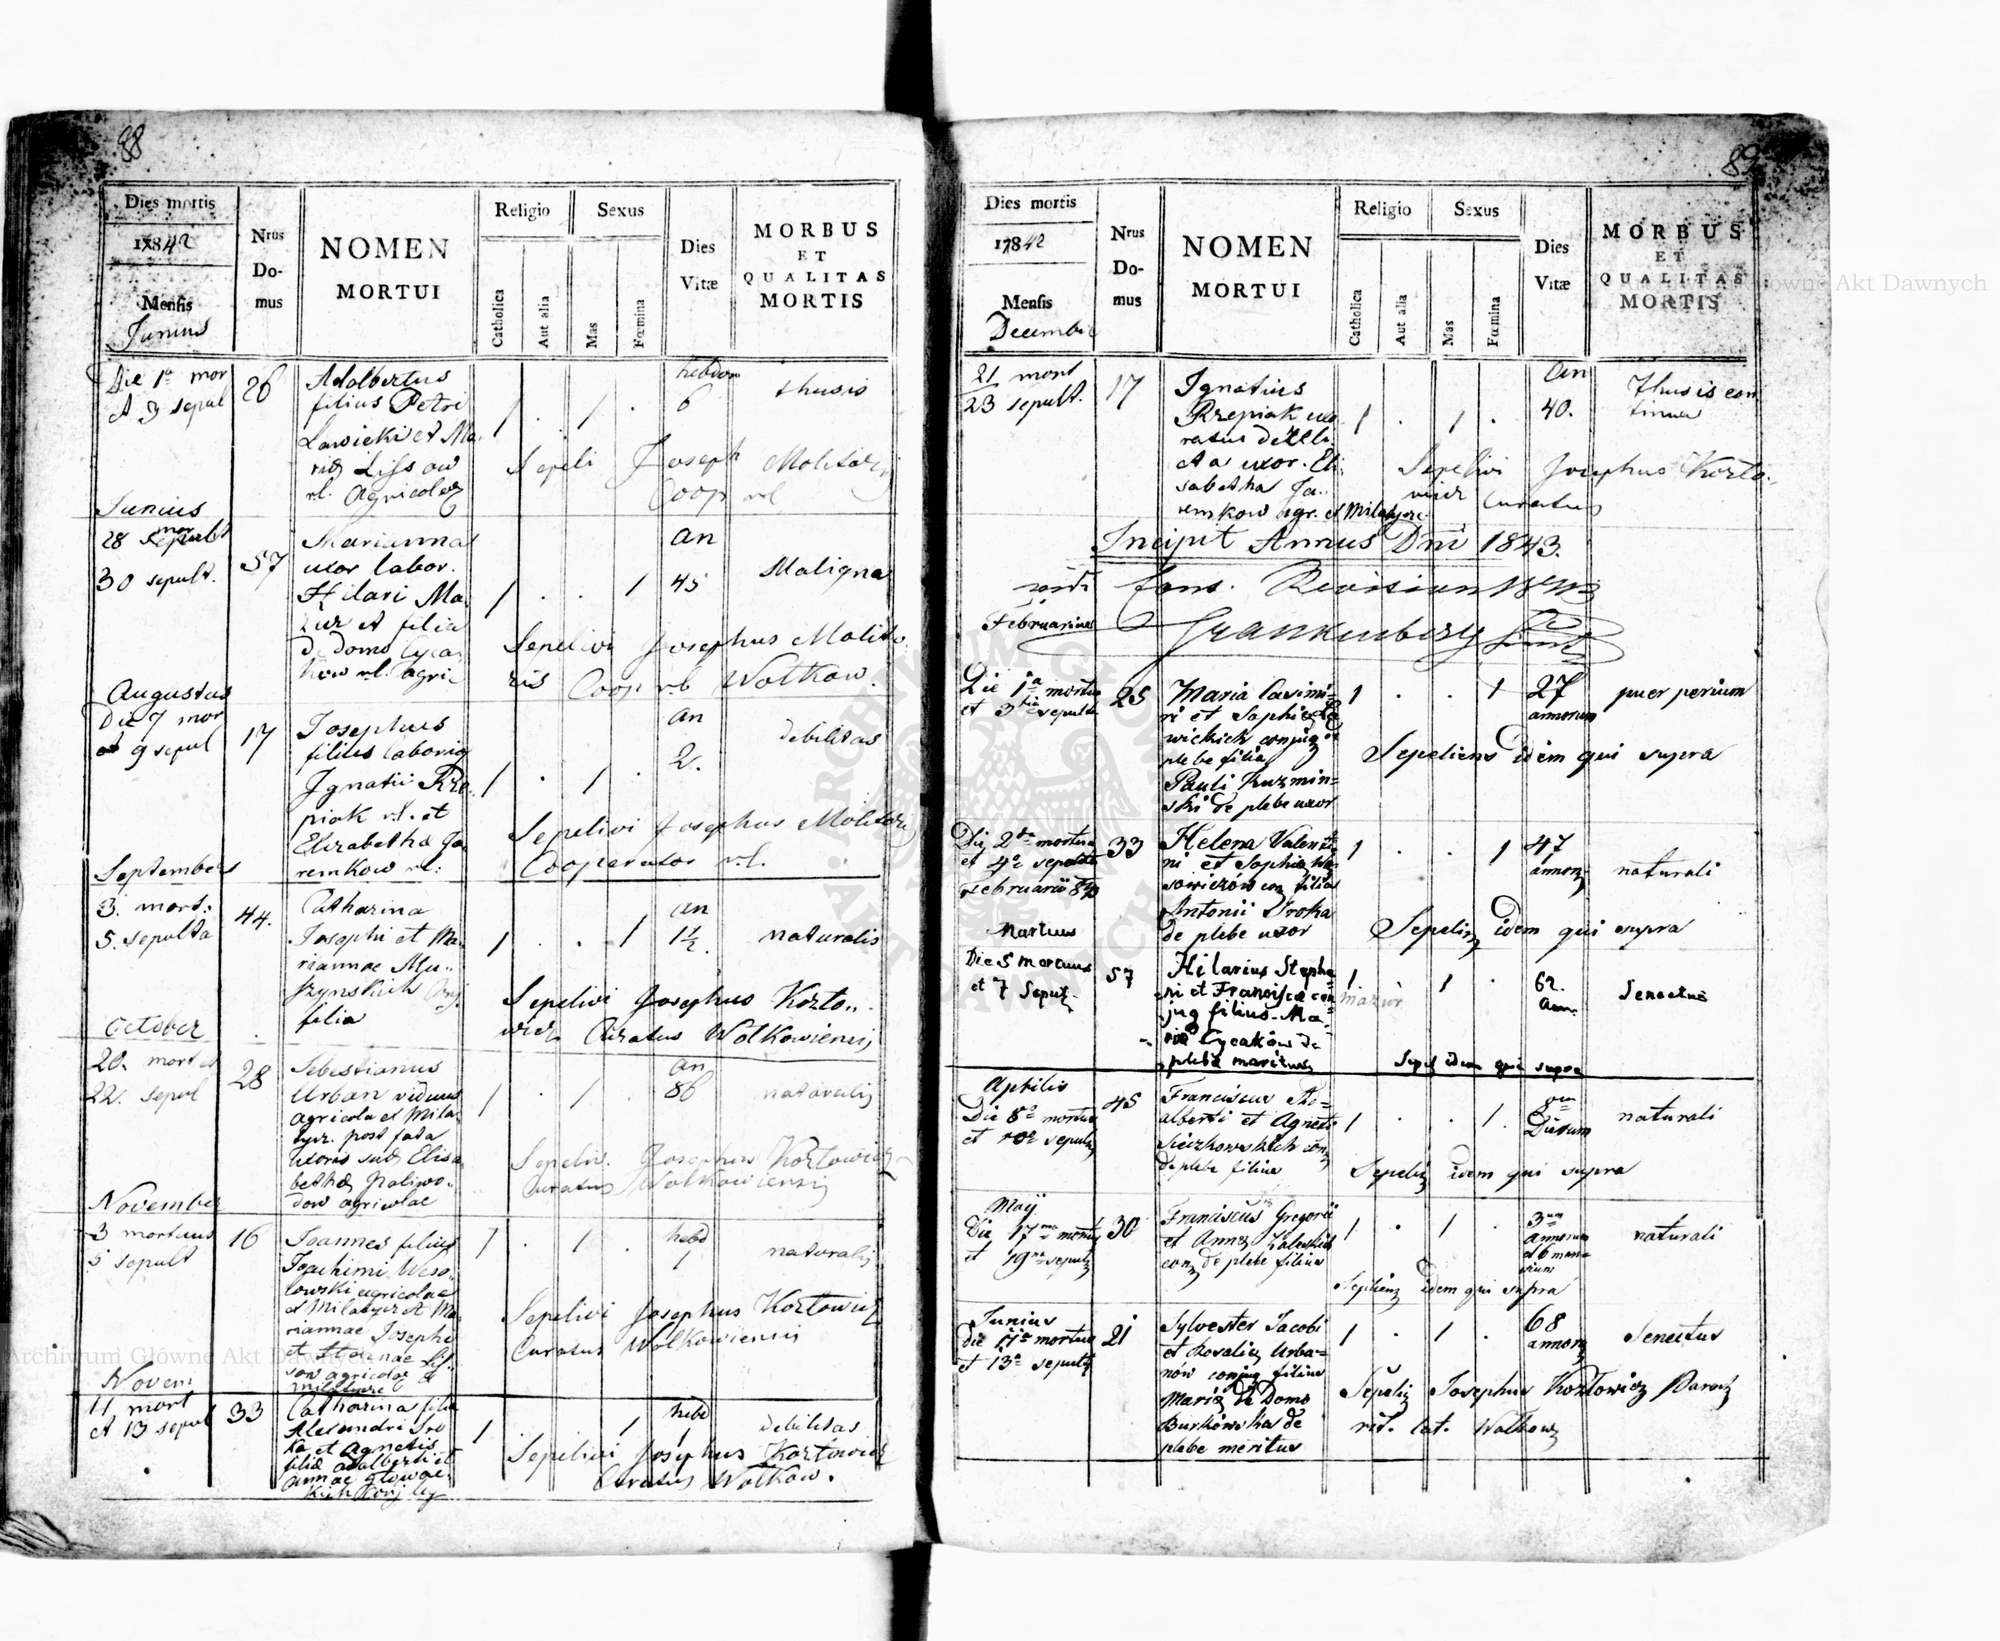 88
Dies mortis
1842
Mensis
Junius
Nrus
Do-
mus
NOMEN
MORTUI
Religio
Sexus
Catholica
Aut alia
Mas
Fœmina
Dies
Vitæ
MORBUS
ET
QUALITAS
MORTIS
Die 1a mor
et 3 sepul
26
Adalbertus
filius Petri
Lawicki et Ma
riæ Lissow
r.l. Agricolæ
1 . 1 .
hebdom
6
thusis
Sepeli Joseph Molitoris
Coop rl
Junius
28 mor
30 sepult.
57
Marianna
uxor labor.
Hilari Ma
zur et filia
de domo Cyca
kow r.l. agric
1 . . 1
an
45
Maligna
Sepelivi Josephus Molito
ris Coop r.l Wolkow.
Augustus
Die 7 mor
et 9 sepul
17
Josephus
filius laborio
Ignatii Rze
piak r.l. et
Elizabetha Ja
remkow rl:
1 . 1 .
an
2.
debilitas
Sepelivi Josephus Molitoris
Cooperator r.l.
Septembris
3. mort:
5. sepulta
44.
Catharina
Josephi et Ma
riannae Mu-
szynskich Conj.
filia
1 . . 1
an
1½
naturalis
Sepelivi Josephus Kozło-
wicz Curatus Wolkowiensis
October
20. mort et
22. sepul
28
Sebestianus
Urban viduus
agricola et Mila
tycz. post fata
uxoris suæ Elisa
bethæ Paliwo-
dow agricolae
1 . 1 .
an
86
naturalis
Sepeliv. Josephus Kozłowicz
Curatus Wolkowiensis
November
3 mortuus
5 sepult
16
Joannes filius
Joachimi Weso-
łowski agricolae
et Milatycz et Ma
riannae Josephi
1 . 1 .
hebd
1
naturalis
Sepelivi Josephus Kozłowicz
Curatus Wolkowiensis
Novem
11 mort
et 13 sepul
33
Catharina filia
Alexandri Sro
ka et Agnetis
filiæ Adalberti et
annae Głowac-
kich Conj
1 . . 1
hebd
1
debilitas
Sepelivi Josephus Kozłowicz
Curatus Wolkow.
89
Dies mortis
1842
Mensis
Decembris
Nrus
Do-
mus
NOMEN
MORTUI
Religio
Sexus
Catholica
Aut alia
Mas
Fœmina
Dies
Vitæ
MORBUS
ET
QUALITAS
MORTIS
21 mort
23 sepult.
17
Ignatius
Rzepiak uxo
ratus
uxor. Eli
sabetha Ja-
remkow agr. et Milatycz
1 . 1 .
an
40.
Thusis con
tinua
Sepelivi Josephus Kozło-
wicz Curatus
Incipit Annus Dni 1843.
Revision 1843
Frankenberg
Februarius
Die 1a mortua
et 3tia sepulta
25
Maria Casimi=
ri et Sophiæ La
wickich conjug
plebe filia
Pauli Kuzmin=
ski de plebe uxor
1 . . 1
27
annorum
puer perium
Sepeliens idem qui supra
Die 2da mortua
et 4ta sepulta
Februarii 843
33
Helena Valenti=
ni et Sophiæ Wą
sowiczów con filia
Antonii Sroka
de plebe uxor
1 . . 1
47
annor
naturali
Sepeliens idem qui supra
Martius
Die 5 mortuus
et 7 Sepult.
57
Hilarius Stepha
ni et Franciscæ con
jug filius. Ma-
riæ Cycaków de
plebe maritus
mazur
1 . 1 .
62.
Ann.
Senectus
Sepel idem qui supra
Aprilis
Die 8a mortua
et 10a sepulta
45
Franciscus Ad=
alberti et Agnetis
Sieczkowskich con
de plebe filius
1 . . 1
8um
Dierum
naturali
Sepeliens idem qui supra
Maij
Die 17ma mortu
et 19na sepult
30
Franciscus Gregorii
et Annæ Zaleskich
con de plebe filius
1 . 1 .
3um
annorum
et 6 men=
sium
naturali
Sepeliens idem qui supra
Junius
die 11a mortuus
et 13a sepult
21
Sylvester Jacobi
et Rosaliæ Urba=
nów conjug filius
Mariæ de Domo
Burkówska de
plebe meritus
1 . 1 .
68
annor
Senectus
Sepeliens Josephus Kozłowicz Paroch
rit. lat. Wolkow
Archiwum Główne Akt Dawnych
Archiwum Główne Akt Dawnych